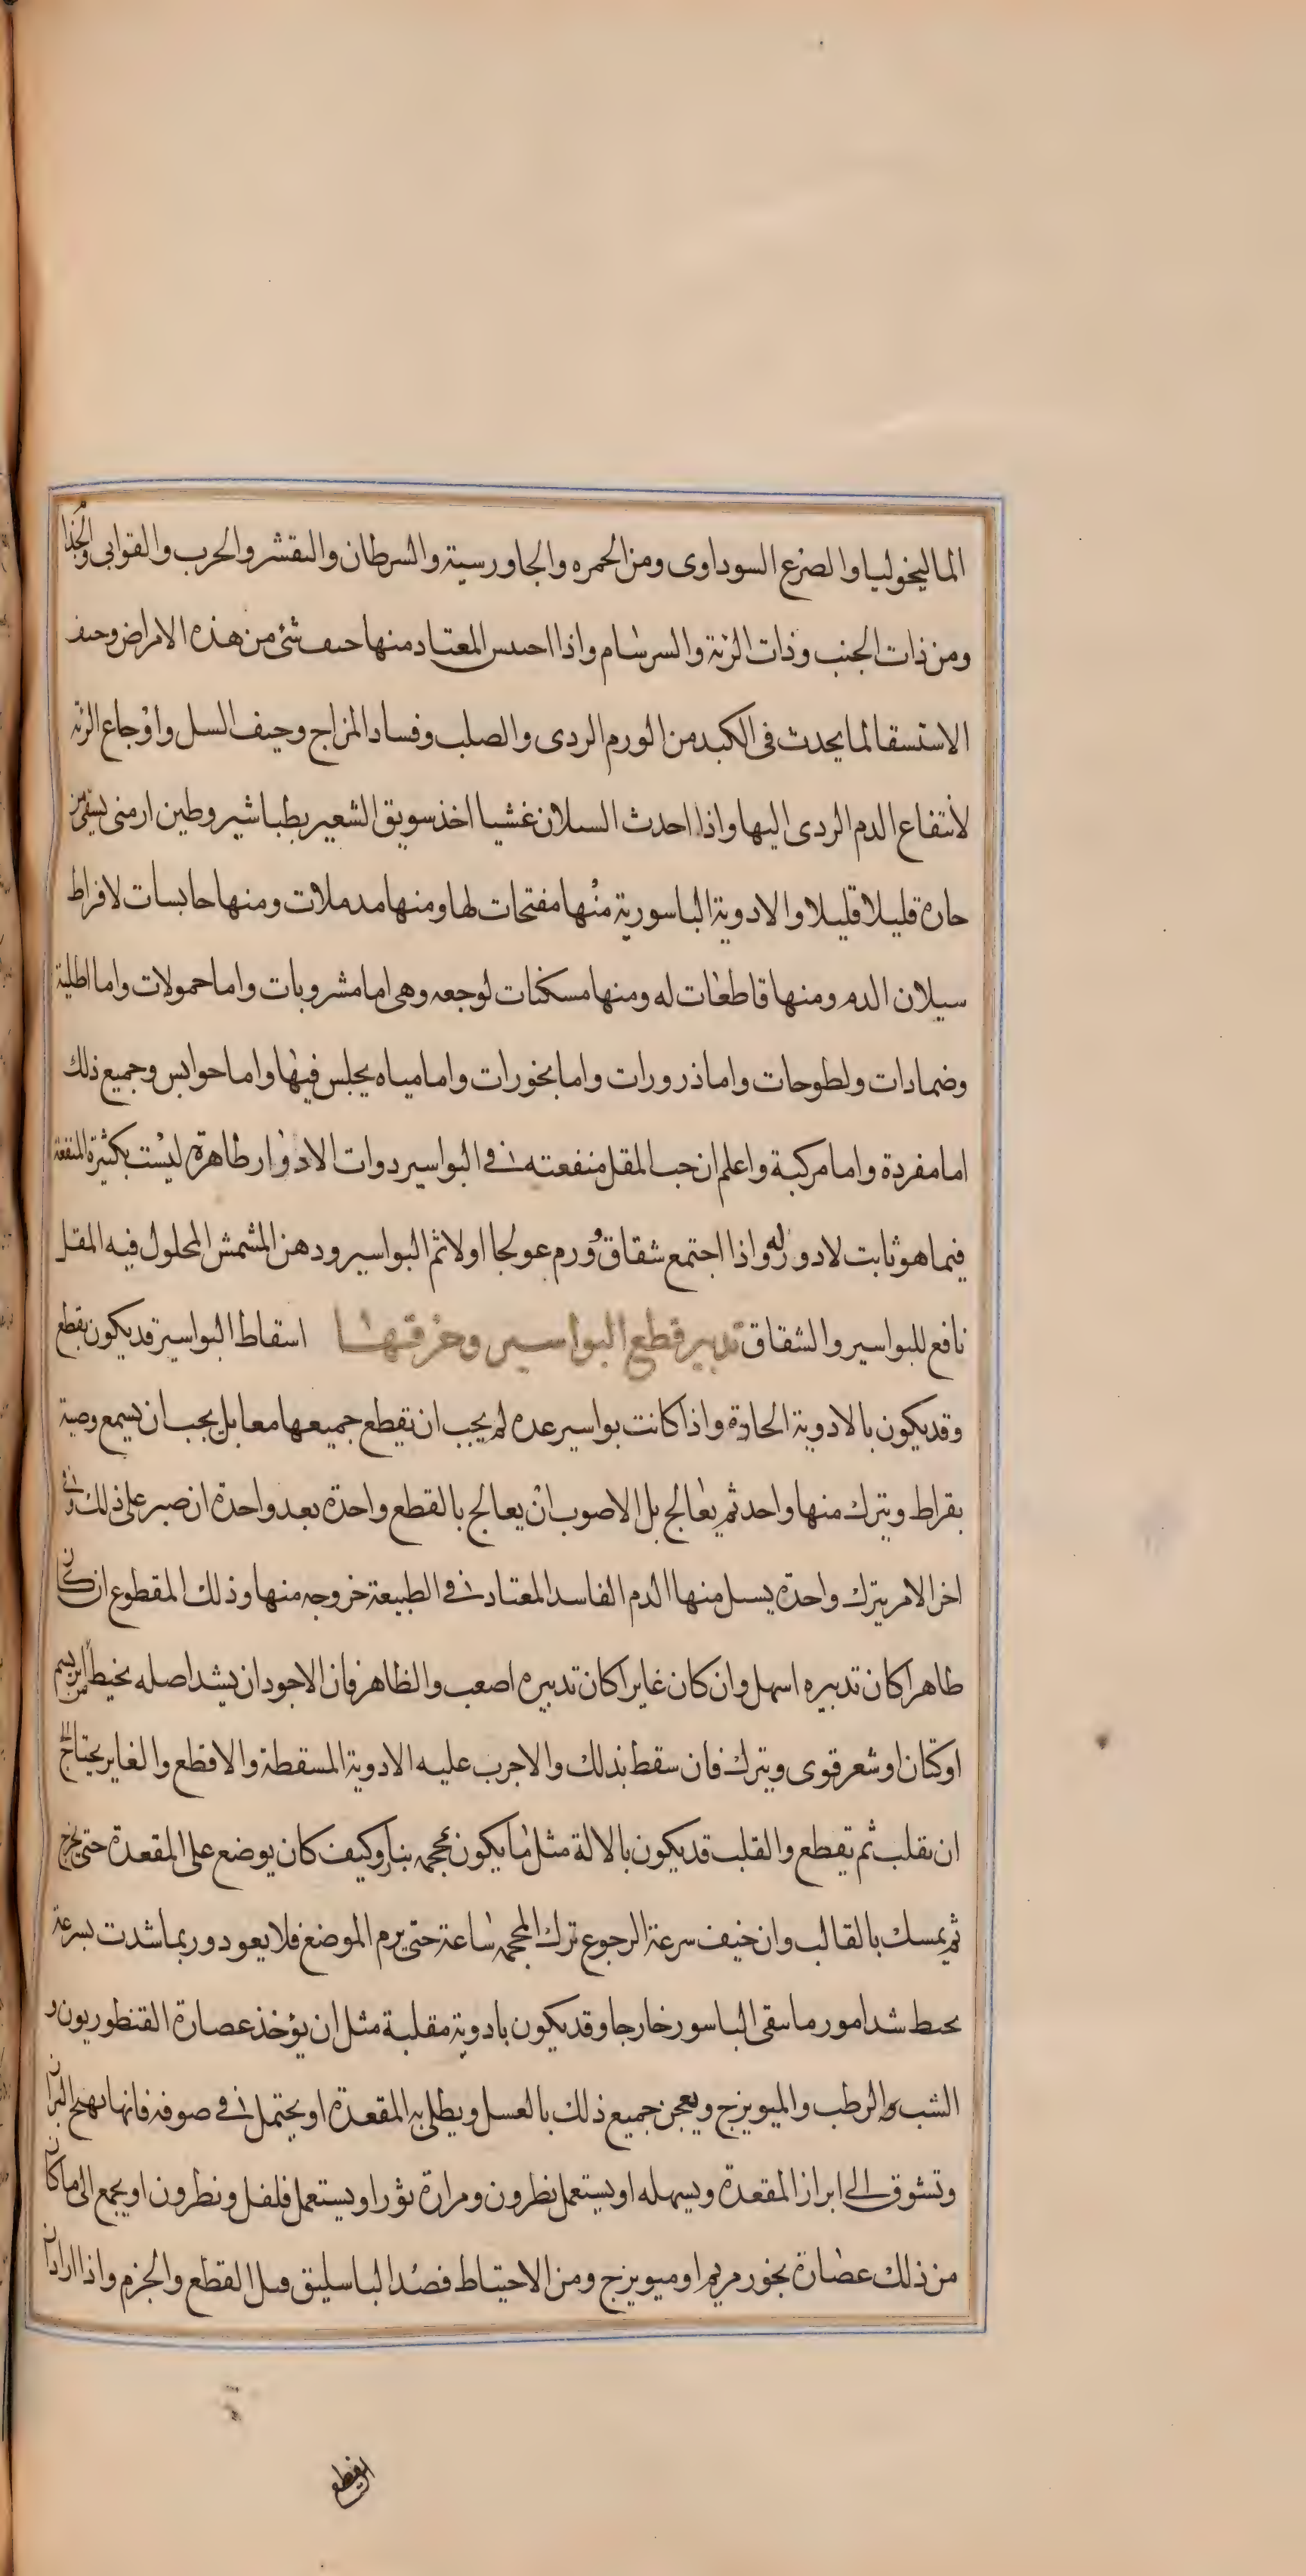 الماليخوليا والصرع السوداوى ومن الحمره والجاورسية والسرطان والىقشر والحرب والقوابى والجذام
ومن ذات الجنب وذات الرئة والسرسام واذا احىىس المعتاد منها حىف شئ من هذه الامراض وحىف
الاستسقا لما يحدث فى الكبد من الورم الردى والصلب وفساد المزاج وحيف السل واوجاع الرئة
لانتفاع الدم الردى اليها واذا احدث السىلان غشيا اخذ سويق الشعير بطباشير وطين ارمنى يسقى من
حاره قليلا قليلا والادوية الباسورية منها مفتحات لها ومنها مدملات ومنها حابسات لافراط
سيلان الدم ومنها قاطعات له ومنها مسكنات لوجعه وهى اما مشروبات واما حمولات واما اطلية
وضمادات ولطوحات واما ذرورات واما بخورات واما مياه يجلس فيها واما حوابس وجميع ذلك
اما مفردة واما مركبة واعلم ان حب المقل منفعته فى البواسير دوات الادوار طاهرة ليست بكثيرة المنفعة
فيما هو ثابت لا دور له واذا اجتمع شقاق وورم عولجا اولا ثم البواسير ودهن المشمش المحلول فيه المقل
نافع للبواسير والشقاق تدبير قطع البواسير وحزقتها اسقاط البواسير قد يكون بقطع
وقد يكون بالادوية الحادة واذا كانت بواسير عده لم يجب ان تقطع جميعها معا بل يجب ان يسمع وصية
بقراط ويترك منها واحد ثم يعالج بل الاصوب ان يعالج بالقطع واحدة بعد واحدة ان صبر على ذلك وفى
اخر الامر يترك واحدة يسىل منها الدم الفاسد المعتاد فى الطبيعة خروجه منها وذلك المقطوع ان كان
طاهرا كان تدبيره اسهل وان كان غايرا كان تدبيره اصعب والظاهر فان الاجود ان يشد اصله بخيط من ابريسم
او كتان او شعر قوى ويترك فان سقط بذلك والا جرب عليه الادوية المسقطة والا قطع والغاير يحتاج الى
ان تقلب ثم تقطع والقلب قد يكون بالالة مثل ما يكون بمحجمه بنار او كيف كان يوضع على المقعدة حتى يخرج
ثم يمسك بالقالب وان خيف سرعة الرجوع ترك المحجمه ساعة حتى يرم الموضع فلا يعود وربما شدت بسرعة
بحىط شدا مورما ىىقى الباسور خارجا وقد يكون بادوية مقلبة مثل ان يؤخذ عصارة القنطوريون و
الشب الرطب والميويزج ويعجن جميع ذلك بالعسل ويطلى به المقعدة او يحتمل فى صوفة فانها ىهىج البران
وتشوق الى ابراز المقعدة ويسهله او يستعمل نطرون ومرارة ثور او يستعمل فلفل ونطرون او يجمع الى ما كان
من ذلك عصارة بخور مريم او ميويزج ومن الاحتياط فصد الباسليق قىل القطع والخزم واذا اراد ان
القطع